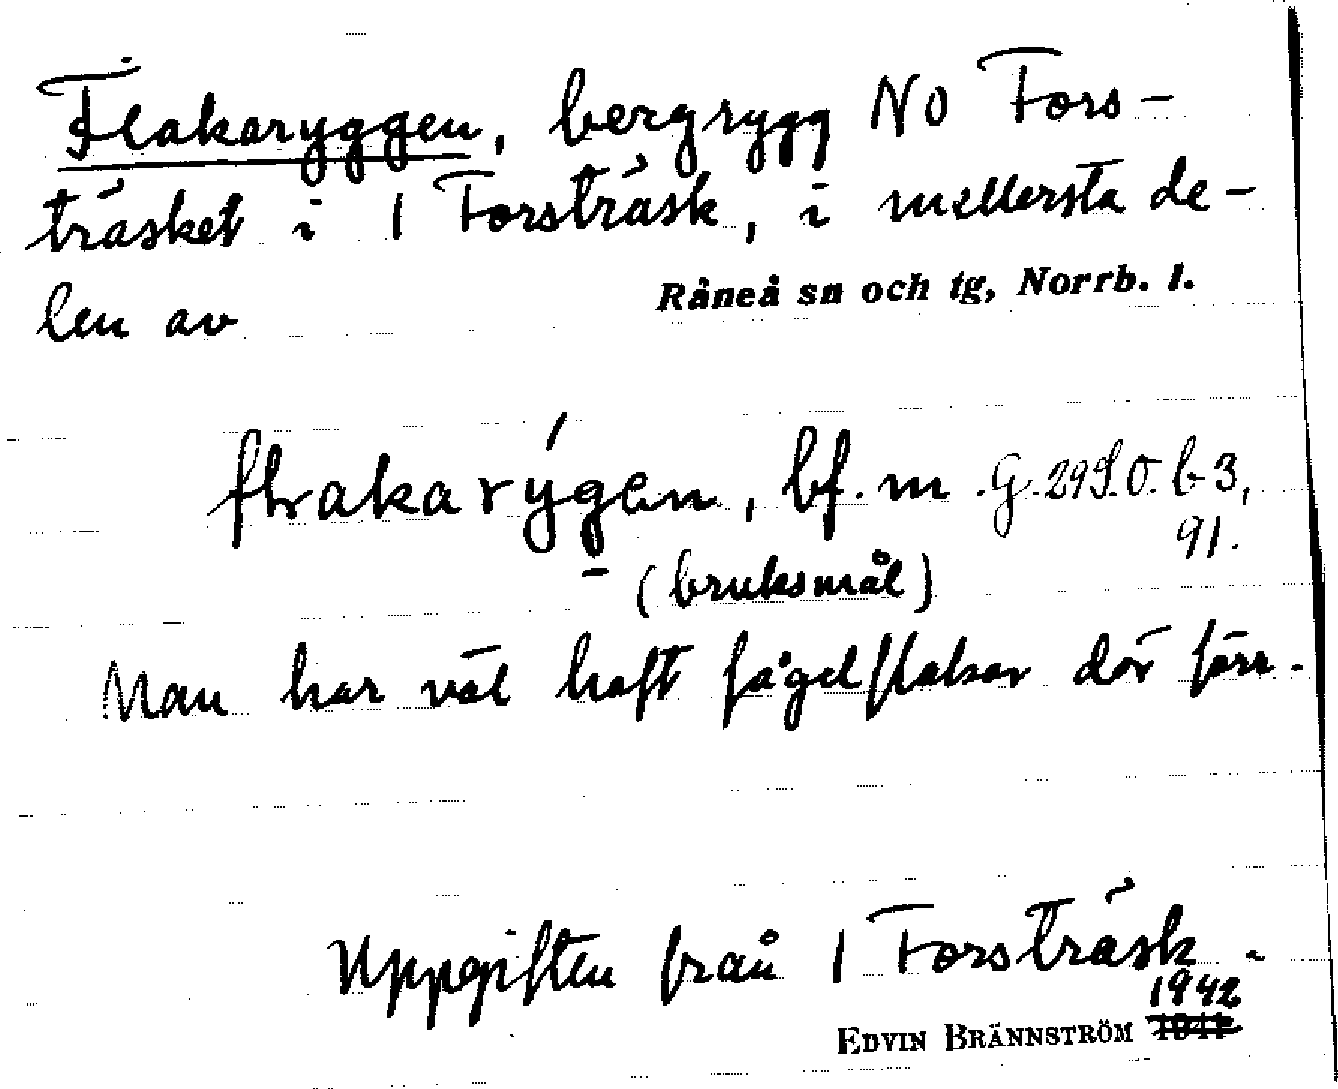 Flakaryggen, bergrygg NO Fors-
träsket i 1 Forsträsk, i mellersta de-
len av Råneå sn och tg, Norrb. l.
flrakarýgen, bf. m G. 299. O. b 3,
91.
(bruksmål)
Man har väl haft fågelflakar där förr.
Uppgiften från 1 Forsträsk.
1942
EDVIN BRÄNNSTRÖM 1941